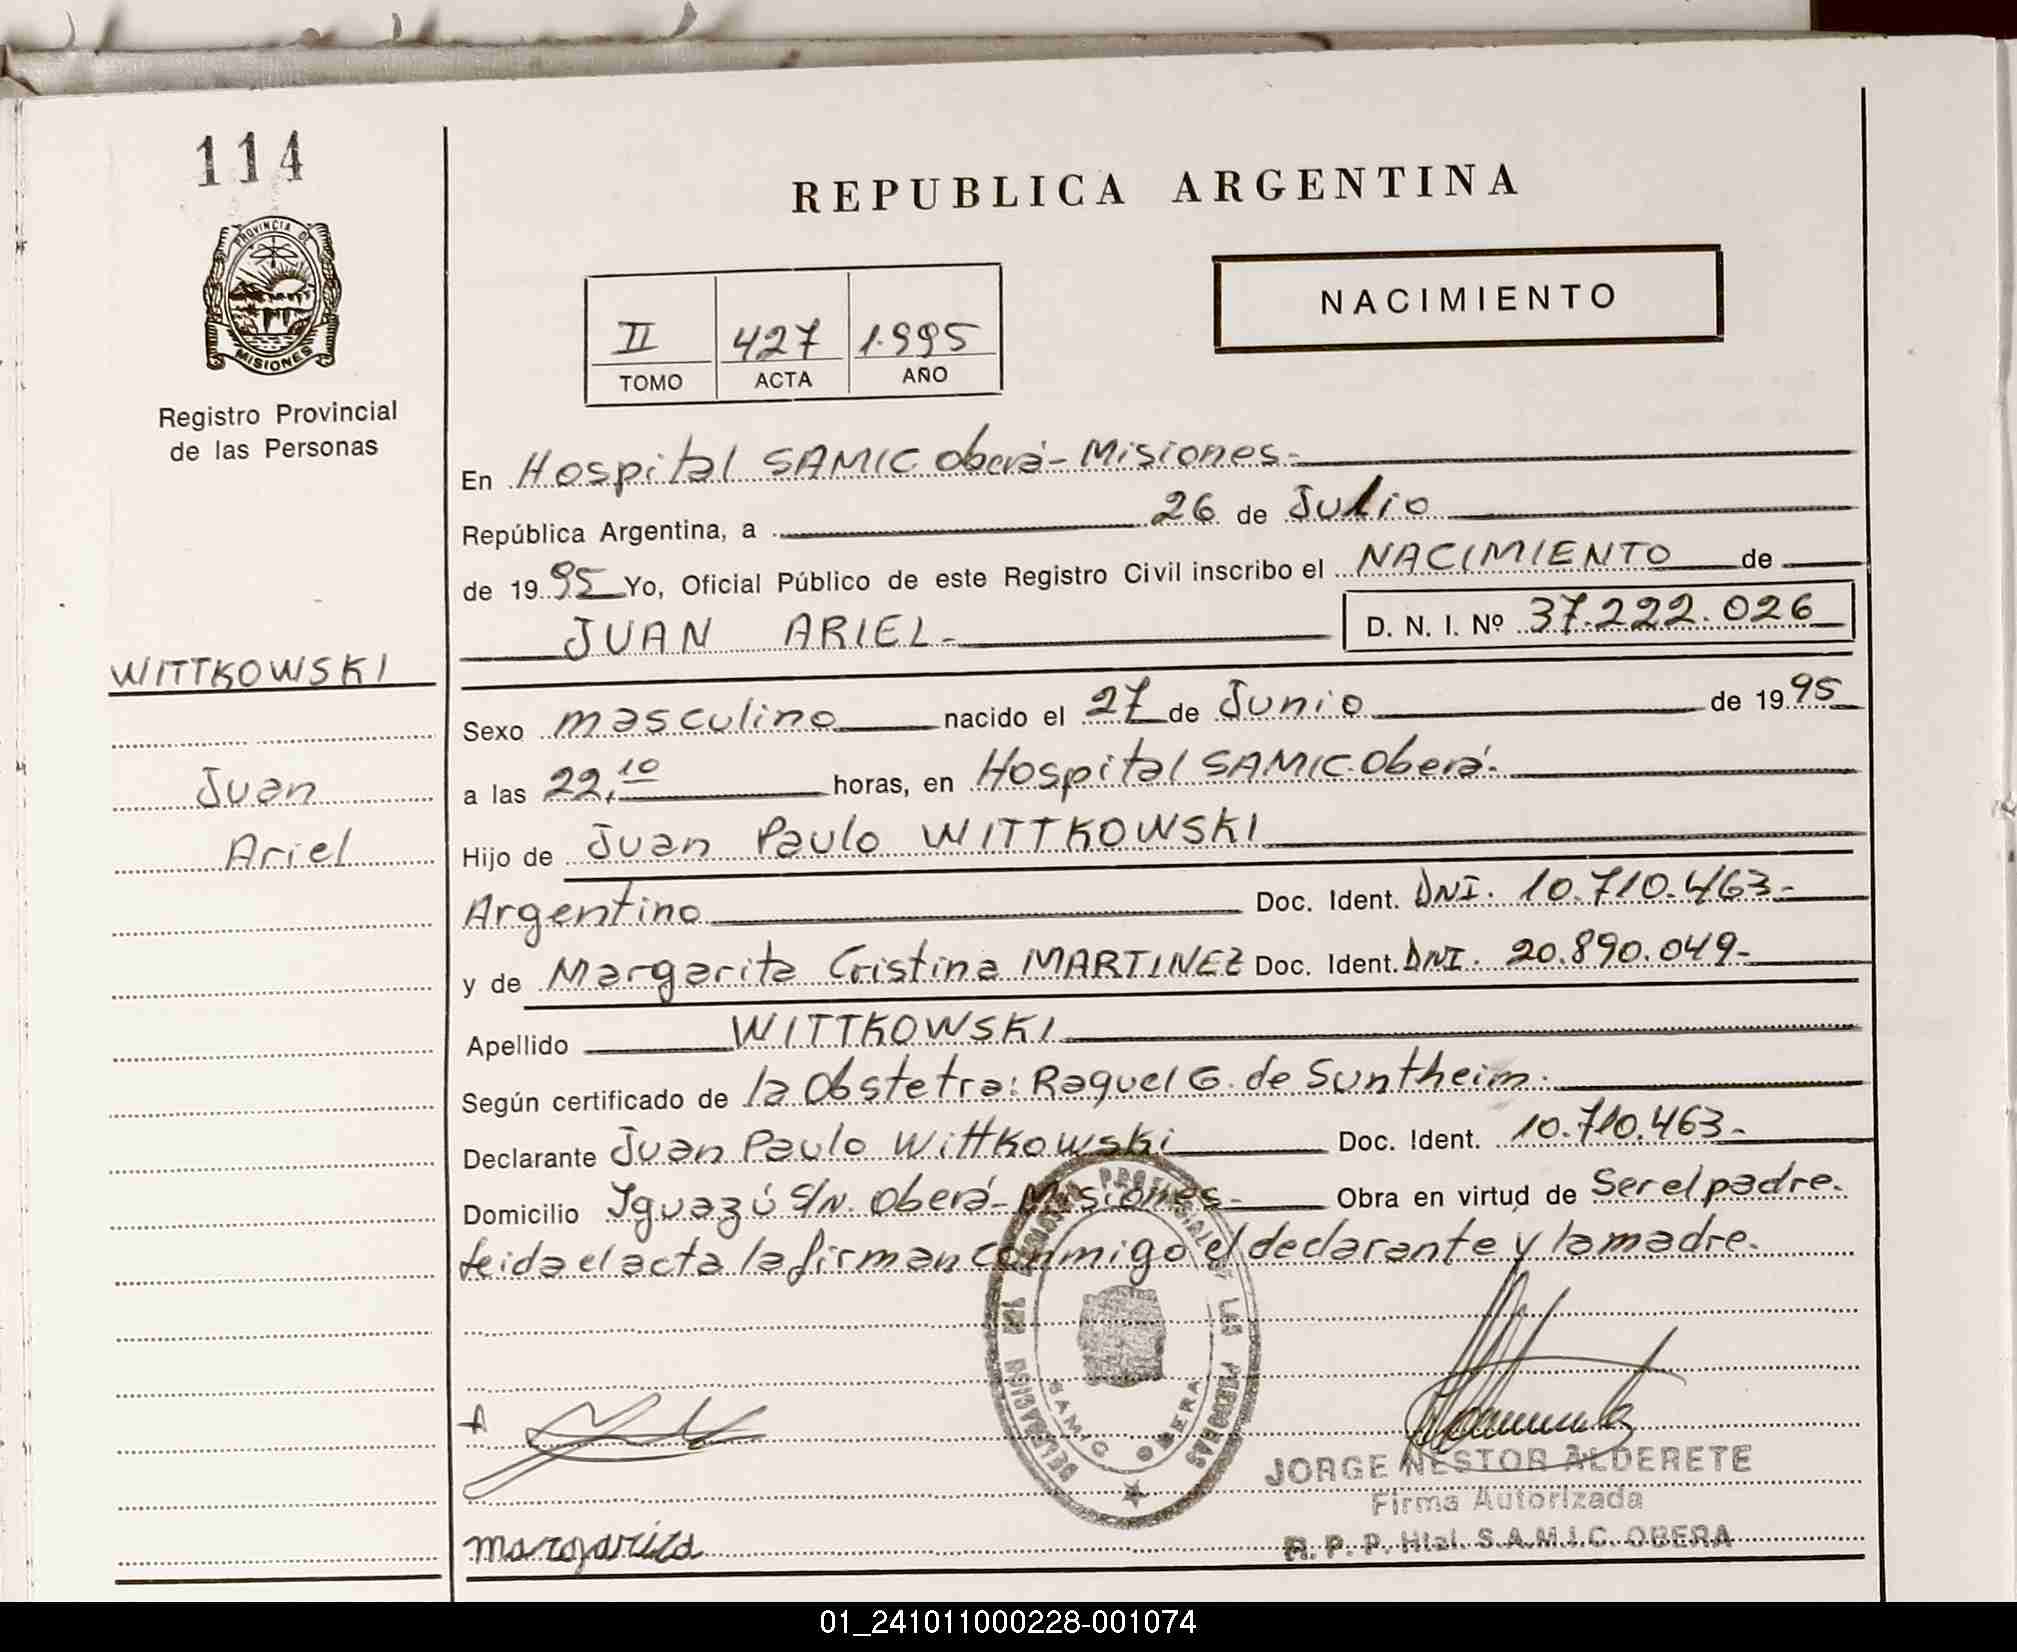 114
PROVINCIA DE
MISIONES
Registro Provincial
de las Personas
REPUBLICA ARGENTINA
NACIMIENTO
II 427 1.995
TOMO ACTA AÑO
En Hospital SAMIC Oberá - Misiones.-
República Argentina, a 26 de Julio
de 1995 Yo, Oficial Público de este Registro Civil inscribo el NACIMIENTO de
JUAN ARIEL- D. N. I. Nº 37.222.026
WITTKOWSKI
Juan
Ariel
Sexo masculino nacido el 27 de Junio de 1995
a las 22,10 horas, en Hospital SAMIC Oberá.-
Hijo de Juan Paulo WITTKOWSKI
Argentino Doc. Ident. DNI. 10.710.463.-
y de Margarita Cristina MARTINEZ Doc. Ident. DNI. 20.890.049-
Apellido WITTKOWSKI
Según certificado de la Obstetra: Raquel G. de Suntheim.
Declarante Juan Paulo Wittkowski Doc. Ident. 10.710.463.-
Domicilio Iguazú S/N. Oberá - Misiones- Obra en virtud de Ser el padre.
Leida el acta la firman conmigo el declarante y la madre.
DELEGACION DEL REGISTRO PROVINCIAL DE LAS PERSONAS
SAMIC OBERA
JORGE NESTOR ALDERETE
Firma Autorizada
R. P. P. Htal. S.A.M.I.C. OBERA
margarita
01_241011000228-001074